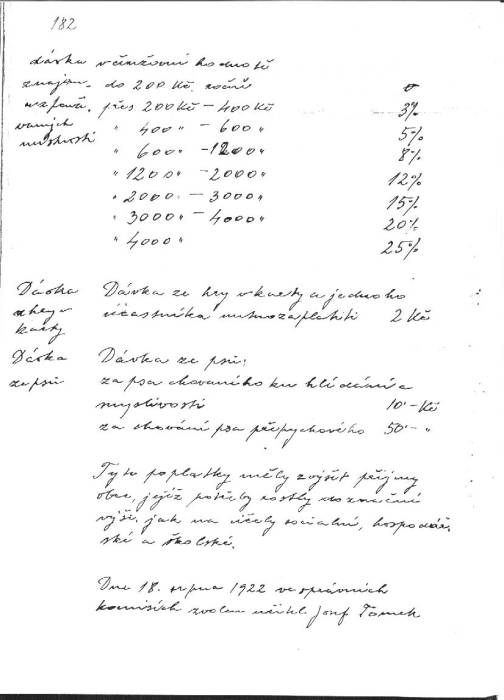 182
dávka v činžovní hodnotě
z najem. do 200 Kč ročně 0
a užívá. přes 200 Kč – 400 Kč 3%
vaných " 400 " – 600 " 5%
místností " 600 " – 1200 " 8%
" 1200 " – 2000 " 12%
" 2000 " – 3000 " 15%
" 3000 " – 4000 " 20%
" 4000 " 25%
Dávka Dávka ze hry v karty a jednoho
z hry v účastníka nutno zaplatiti 2 Kč
karty
Dávka Dávka ze psů:
ze psů za psa chovaného ku hlídání a
myslivosti 10·– Kč
za chování psa přepychového 50·– "
Tyto poplatky měly zvýšit příjmy
obce, jejíž potřeby rostly do značné
výše, jak na účely sociální, hospodář.
ské a školské.
Dne 18. srpna 1922 ve správních
komisích zvolen učitel Josef Tomek